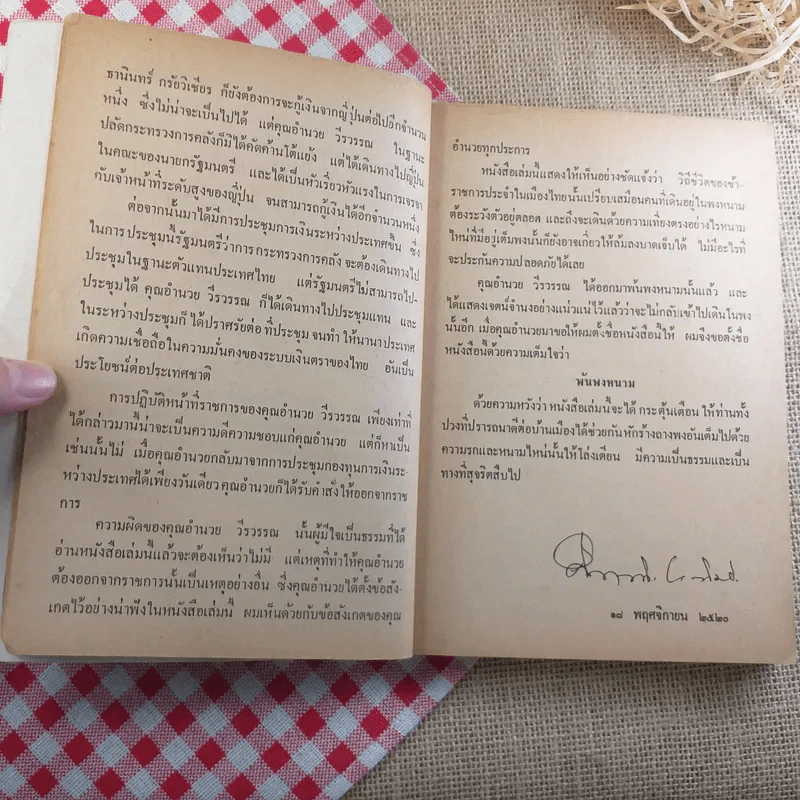 ธานินทร์ กรัยวิเชียร ก็ยังต้องการจะกู้เงินจากญี่ปุ่นต่อไปอีกจำนวน
หนึ่ง ซึ่งไม่น่าจะเป็นไปได้ แต่คุณอำนวย วีรวรรณ ในฐานะ
ปลัดกระทรวงการคลังก็มิได้คัดค้านโต้แย้ง แต่ได้เดินทางไปญี่ปุ่น
ในคณะของนายกรัฐมนตรี และได้เป็นหัวเรี่ยวหัวแรงในการเจรจา
กับเจ้าหน้าที่ระดับสูงของญี่ปุ่น จนสามารถกู้เงินได้อีกจำนวนหนึ่ง
ต่อจากนั้นมาได้มีการประชุมการเงินระหว่างประเทศขึ้น ซึ่ง
ในการประชุมนี้รัฐมนตรีว่าการกระทรวงการคลังจะต้องเดินทางไป
ประชุมในฐานะตัวแทนประเทศไทย แต่รัฐมนตรีไม่สามารถไป-
ประชุมได้ คุณอำนวย วีรวรรณ ก็ได้เดินทางไปประชุมแทน และ
ในระหว่างประชุมก็ได้ปราศรัยต่อที่ประชุมจนทำให้นานาประเทศ
เกิดความเชื่อถือในความมั่นคงของระบบเงินตราของไทย อันเป็น
ประโยชน์ต่อประเทศชาติ
การปฏิบัติหน้าที่ราชการของคุณอำนวย วีรวรรณ เพียงเท่าที่
ได้กล่าวมานี้น่าจะเป็นความดีความชอบแก่คุณอำนวย แต่ก็หาเป็น
เช่นนั้นไม่ เมื่อคุณอำนวยกลับมาจากการประชุมกองทุนการเงินระ-
หว่างประเทศได้เพียงวันเดียว คุณอำนวยก็ได้รับคำสั่งให้ออกจากราช
การ
ความผิดของคุณอำนวย วีรวรรณ นั้นผู้มีใจเป็นธรรมที่ได้
อ่านหนังสือเล่มนี้แล้วจะต้องเห็นว่าไม่มี แต่เหตุที่ทำให้คุณอำนวย
ต้องออกจากราชการนั้นเป็นเหตุอย่างอื่น ซึ่งคุณอำนวยได้ตั้งข้อสัง-
เกตไว้อย่างน่าฟังในหนังสือเล่มนี้ ผมเห็นด้วยกับข้อสังเกตของคุณ
อำนวยทุกประการ
หนังสือเล่มนี้แสดงให้เห็นอย่างชัดแจ้งว่า วิถีชีวิตของข้า-
ราชการประจำในเมืองไทยนั้นเปรียบเสมือนคนที่เดินอยู่ในพงหนาม
ต้องระวังตัวอยู่ตลอด และถึงจะเดินด้วยความเที่ยงตรงอย่างไรหนาม
ไหน่ที่มีอยู่เต็มพงนั้นก็ยังอาจเกี่ยวให้ล้มลงบาดเจ็บได้ ไม่มีอะไรที่
จะประกันความปลอดภัยได้เลย
คุณอำนวย วีรวรรณ ได้ออกมาพ้นพงหนามนั้นแล้ว และ
ได้แสดงเจตน์จำนงอย่างแน่วแน่ไว้แล้วว่าจะไม่กลับเข้าไปเดินในพง
นั้นอีก เมื่อคุณอำนวยมาขอให้ผมตั้งชื่อหนังสือนี้ให้ ผมจึงขอตั้งชื่อ
หนังสือนี้ด้วยความเต็มใจว่า
พ้นพงหนาม
ด้วยความหวังว่า หนังสือเล่มนี้จะได้ กระตุ้นเตือน ให้ท่านทั้ง
ปวงที่ปรารถนาดีต่อบ้านเมืองได้ช่วยกันหักร้างถางพงอันเต็มไปด้วย
ความรกและหนามไหน่นั้นให้โล่งเตียน มีความเป็นธรรมและเป็น
ทางที่สุจริตสืบไป
๑๘ พฤศจิกายน ๒๕๒๐